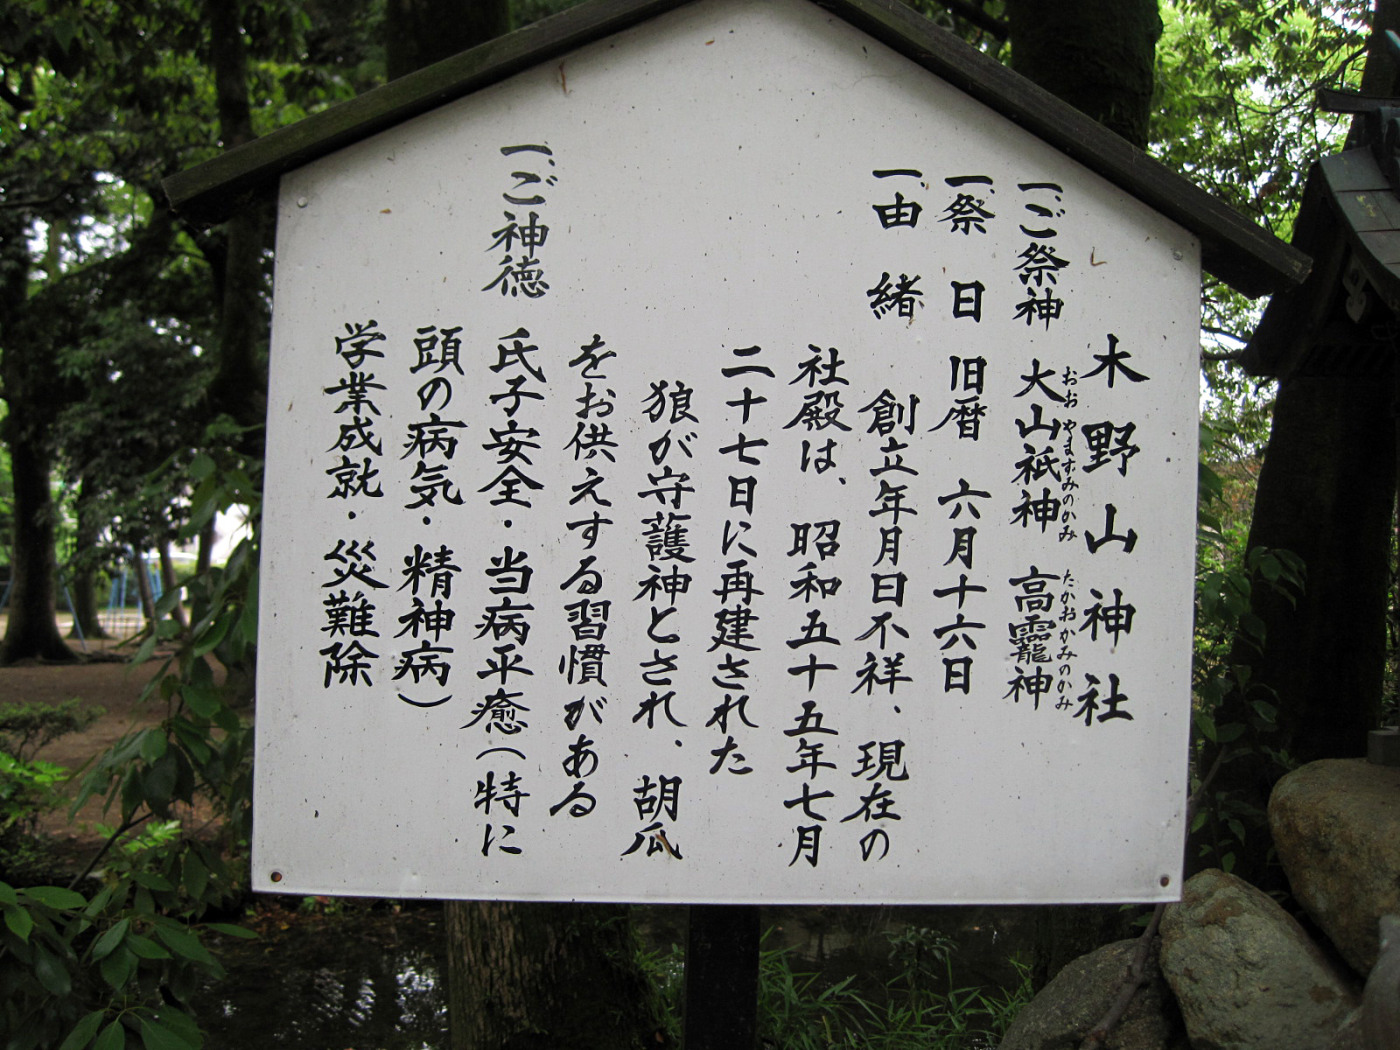 木野山神社
一、ご祭神 大山祇神 高龗神
おおやまずみのかみ たかおかみのかみ
一、祭日 旧暦 六月十六日
一、由緒 創立年月日不祥、現在の
社殿は、昭和五十五年七月
二十七日に再建された
狼が守護神とされ、胡瓜
をお供えする習慣がある
一、ご神徳 氏子安全・当病平癒(特に
頭の病気・精神病)
学業成就・災難除